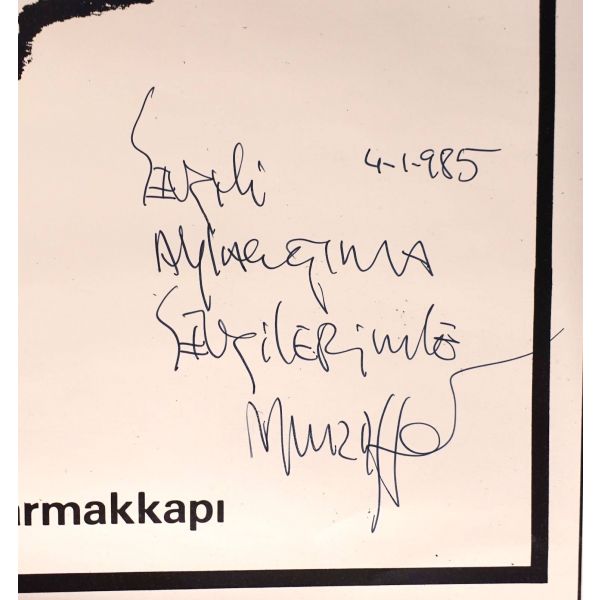 Sevgili 4-1-985
Aylacığıma
Sevgilerimle
Muzaffer
armakkapı